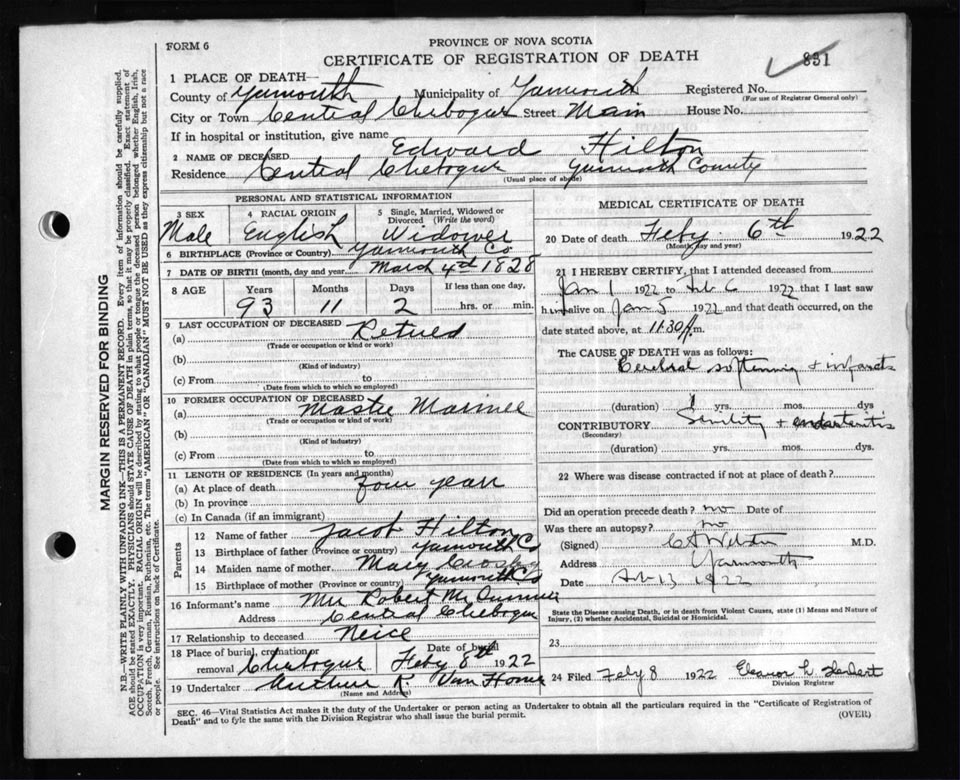 FORM 6
PROVINCE OF NOVA SCOTIA
CERTIFICATE OF REGISTRATION OF DEATH
831
1 PLACE OF DEATH—
County of Yarmouth Municipality of Yarmouth Registered No.
(For use of Registrar General only)
City or Town Central Chebogue Street Main House No.
If in hospital or institution, give name
2 NAME OF DECEASED Edward Hilton
Residence Central Chebogue Yarmouth County
(Usual place of abode)
PERSONAL AND STATISTICAL INFORMATION
3 SEX Male
4 RACIAL ORIGIN English
5 Single, Married, Widowed or Divorced (Write the word) Widower
6 BIRTHPLACE (Province or Country) Yarmouth Co
7 DATE OF BIRTH (month, day and year) March 4th 1828
8 AGE Years Months Days If less than one day,
93 11 2 hrs. or min.
9 LAST OCCUPATION OF DECEASED
(a) Retired
(Trade or occupation or kind of work)
(b)
(Kind of industry)
(c) From to
(Date from which to which so employed)
10 FORMER OCCUPATION OF DECEASED
(a) Master Mariner
(Trade or occupation or kind of work)
(b)
(Kind of industry)
(c) From to
(Date from which to which so employed)
11 LENGTH OF RESIDENCE (In years and months)
(a) At place of death four years
(b) In province
(c) In Canada (if an immigrant)
Parents
12 Name of father Jacob Hilton
13 Birthplace of father (Province or country) Yarmouth Co
14 Maiden name of mother Mary Crosby
15 Birthplace of mother (Province or country) Yarmouth Co
16 Informant's name Mrs Robert
Address Central Chebogue
17 Relationship to deceased Neice
18 Place of burial, cremation or removal Chebogue Date of burial Feby 8th 1922
19 Undertaker Arthur R. Van Horne
(Name and Address)
MEDICAL CERTIFICATE OF DEATH
20 Date of death Feby 6th 1922
(Month, day and year)
21 I HEREBY CERTIFY, that I attended deceased from
Jan 1 1922 to Feb 6 1922 that I last saw
him alive on Jan 5 1922 and that death occurred, on
date stated above, at 11.30 P.m.
The CAUSE OF DEATH was as follows:
Cerebral softening + infarcts
(duration) yrs. mos. dys
CONTRIBUTORY Senility + endarteritis
(Secondary)
(duration) yrs. mos. dys.
22 Where was disease contracted if not at place of death?
Did an operation precede death? no Date of
Was there an autopsy? no
(Signed) M.D.
Address Yarmouth
Date Feb 13 1922
State the Disease causing Death, or in death from Violent Causes, state (1) Means and Nature of
Injury, (2) whether Accidental, Suicidal or Homicidal.
23
24 Filed Feby 8 1922 Eleanor L
Division Registrar
SEC. 46—Vital Statistics Act makes it the duty of the Undertaker or person acting as Undertaker to obtain all the particulars required in the "Certificate of Registration of
Death" and to fyle the same with the Division Registrar who shall issue the burial permit.
(OVER)
MARGIN RESERVED FOR BINDING
N.B.—WRITE PLAINLY WITH UNFADING INK—THIS IS A PERMANENT RECORD. Every item of information should be carefully supplied.
AGE should be stated EXACTLY. PHYSICIANS should STATE CAUSE OF DEATH in plain terms, so that it may be properly classified. Exact statement of
OCCUPATION is very important. RACIAL ORIGIN will be described by stating to what people or tongue the deceased person belonged whether English, Irish,
Scotch, French, German, Russian, Ruthenian, etc. The terms "AMERICAN" OR "CANADIAN" MUST NOT BE USED as they express citizenship but not a race
or people. See instructions on back of Certificate.